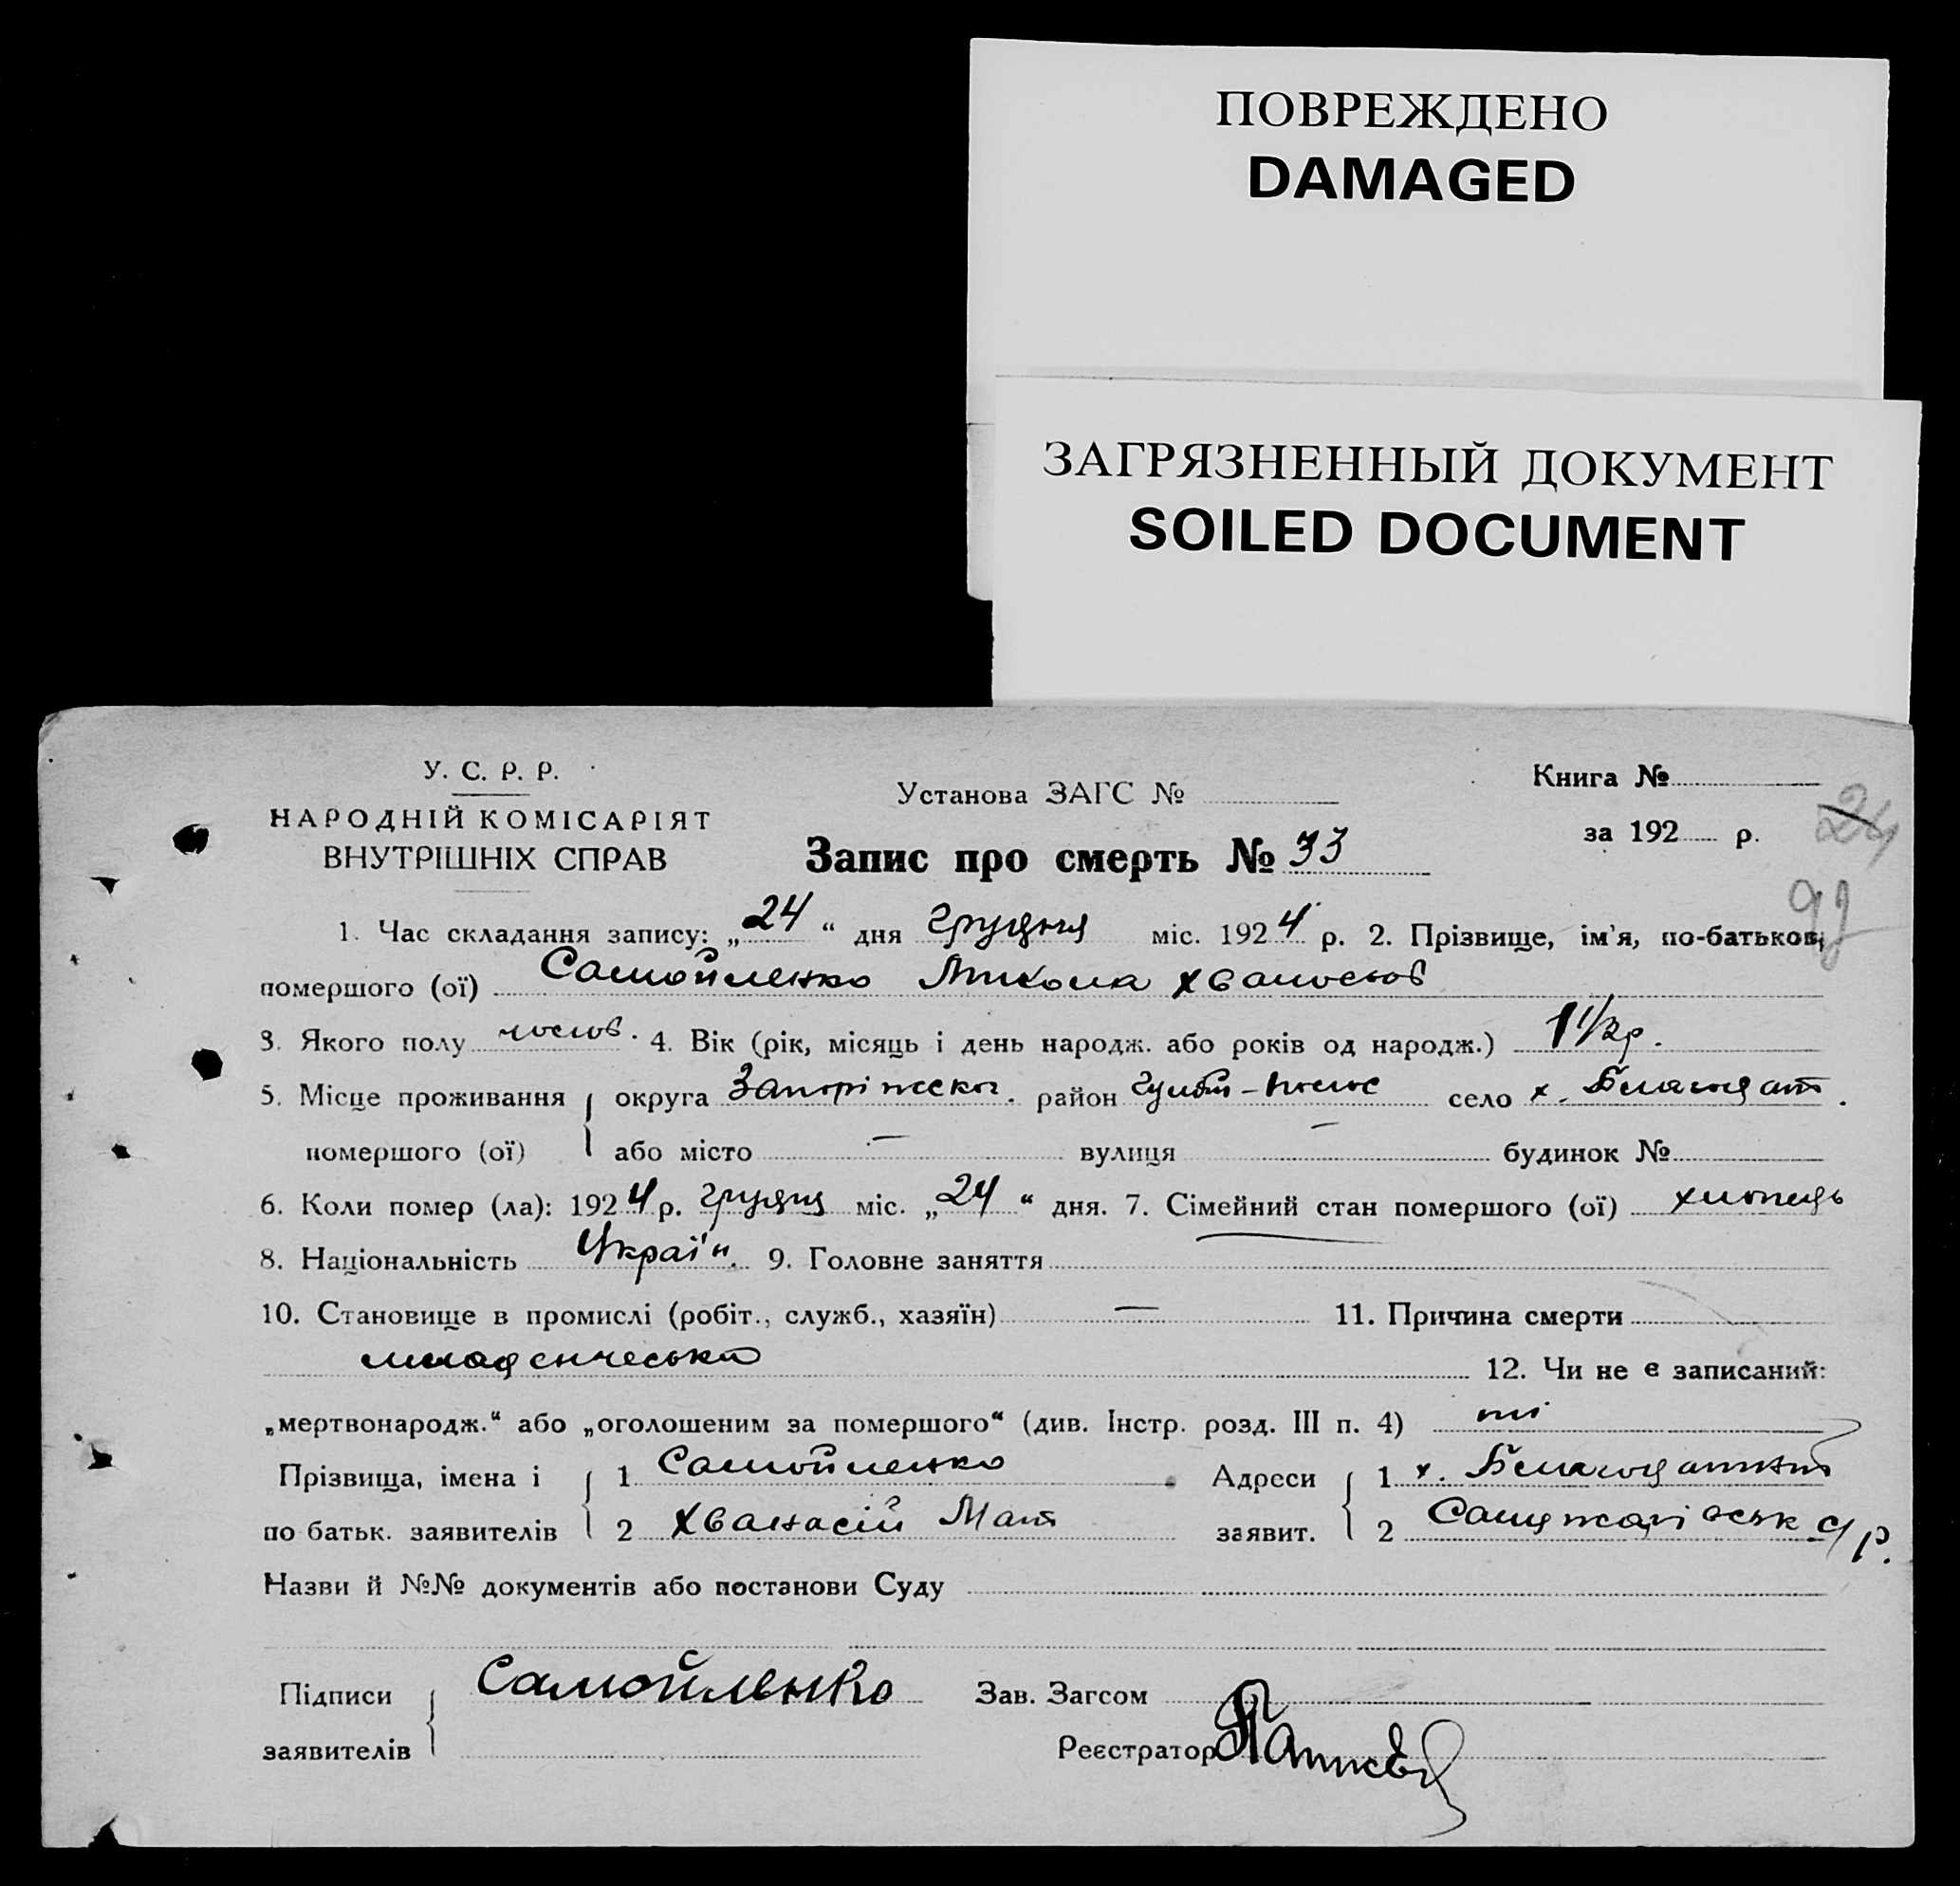 ПОВРЕЖДЕНО
DAMAGED
ЗАГРЯЗНЕННЫЙ ДОКУМЕНТ
SOILED DOCUMENT
У. С. Р. Р.
НАРОДНІЙ КОМІСАРІЯТ
ВНУТРІШНІХ СПРАВ
Установа ЗАГС №
Книга №
за 192 р.
24
Запис про смерть № 33
1. Час складання запису: „24“ дня грудня міс. 1924 р. 2. Прізвище, ім'я, по-батькові
помершого (ої) Самойленко Микола Хванасіов
3. Якого полу чолов. 4. Вік (рік, місяць і день народж. або років од народж.) 1 1/2 р.
5. Місце проживання округа Запоріжськ. район Гуляй-Польс село х. Благодатн.
помершого (ої) або місто — вулиця — будинок №
6. Коли помер (ла): 1924 р. грудня міс. „24“ дня. 7. Сімейний стан помершого (ої) хлопець
8. Національність Україн. 9. Головне заняття
10. Становище в промислі (робіт., служб., хазяїн) — 11. Причина смерти
младенческа 12. Чи не є записаний:
„мертвонародж.“ або „оголошеним за помершого“ (див. Інстр. розд. III п. 4) ні
Прізвища, імена і 1 Самойленко Адреси 1 х. Благодатний
по батьк. заявителів 2 Хванасій Мат заявит. 2 с/р.
Назви й №№ документів або постанови Суду
Підписи Самойленко Зав. Загсом
заявителів Реєстратор